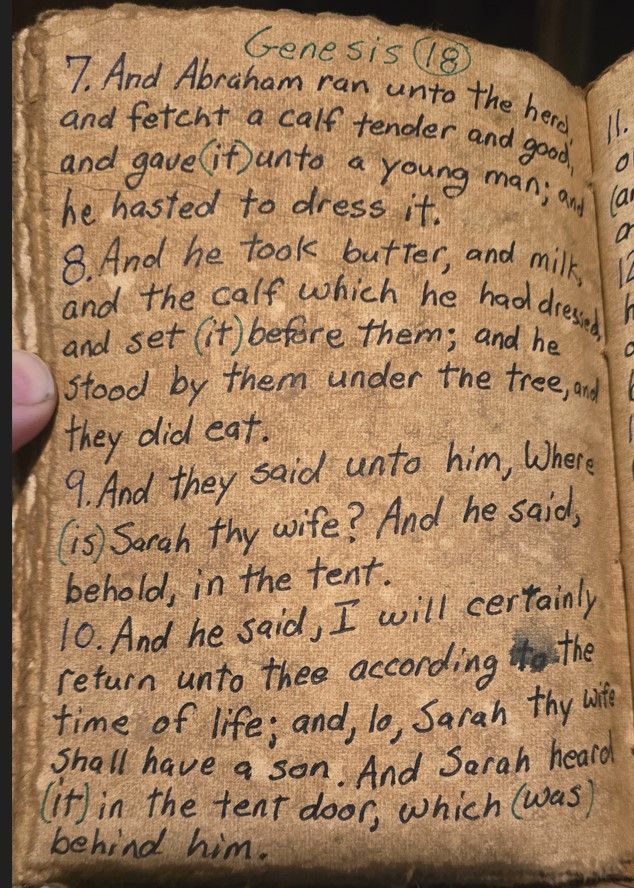 Genesis (18)
7. And Abraham ran unto the herd,
and fetcht a calf tender and good,
and gave (it) unto a young man; and
he hasted to dress it.
8. And he took butter, and milk,
and the calf which he had dressed,
and set (it) before them; and he
stood by them under the tree, and
they did eat.
9. And they said unto him, Where
(is) Sarah thy wife? And he said,
behold, in the tent.
10. And he said, I will certainly
return unto thee according to the
time of life; and, lo, Sarah thy wife
shall have a son. And Sarah heard
(it) in the tent door, which (was)
behind him.
11.
12